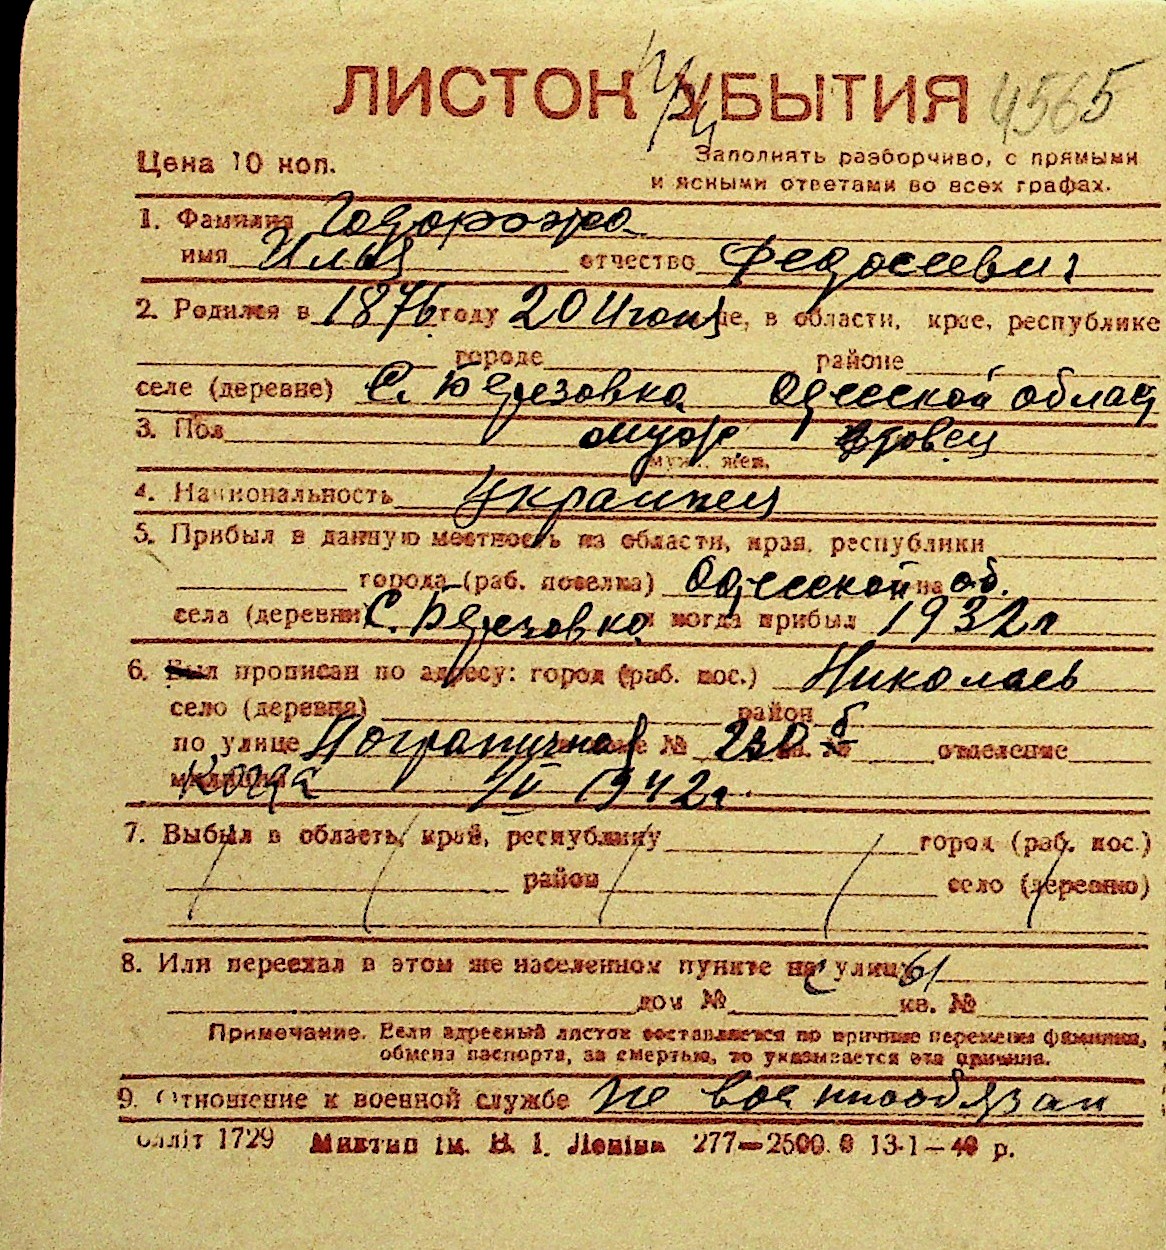 ЛИСТОК УБЫТИЯ 4565
Цена 10 коп.
Заполнять разборчиво, с прямыми
и ясными ответами во всех графах.
1. Фамилия
имя Илья отчество Федосеевич
2. Родился в 1876 году 20 Июня це, в области, крае, республике
городе районе
селе (деревне) С. Березовка Одесской област
3. Пол муж вдовец
муж., жен.
4. Национальность Украинец
5. Прибыл в данную местность из области, края, республики
города (раб. поселка) Одесской на об.
села (деревни) С. Березовка и когда прибыл 1932 г
6. Был прописан по адресу: город (раб. пос.) Николаев
село (деревня) район
по улице Пограничная № 230 б отделение
милиции Когда 1/IV 1942 г.
7. Выбыл в область, край, республику город (раб. пос.)
район село (деревню)
8. Или переехал в этом же населенном пункте на улицу
дом № кв. №
Примечание. Если адресный листок составляется по причине перемены фамилии,
обмена паспорта, за смертью, то указывается эта причина.
9. Отношение к военной службе не военнообязан
Обліт 1729 Миктип ім. В. І. Леніна 277—2500.0 13-1—40 р.